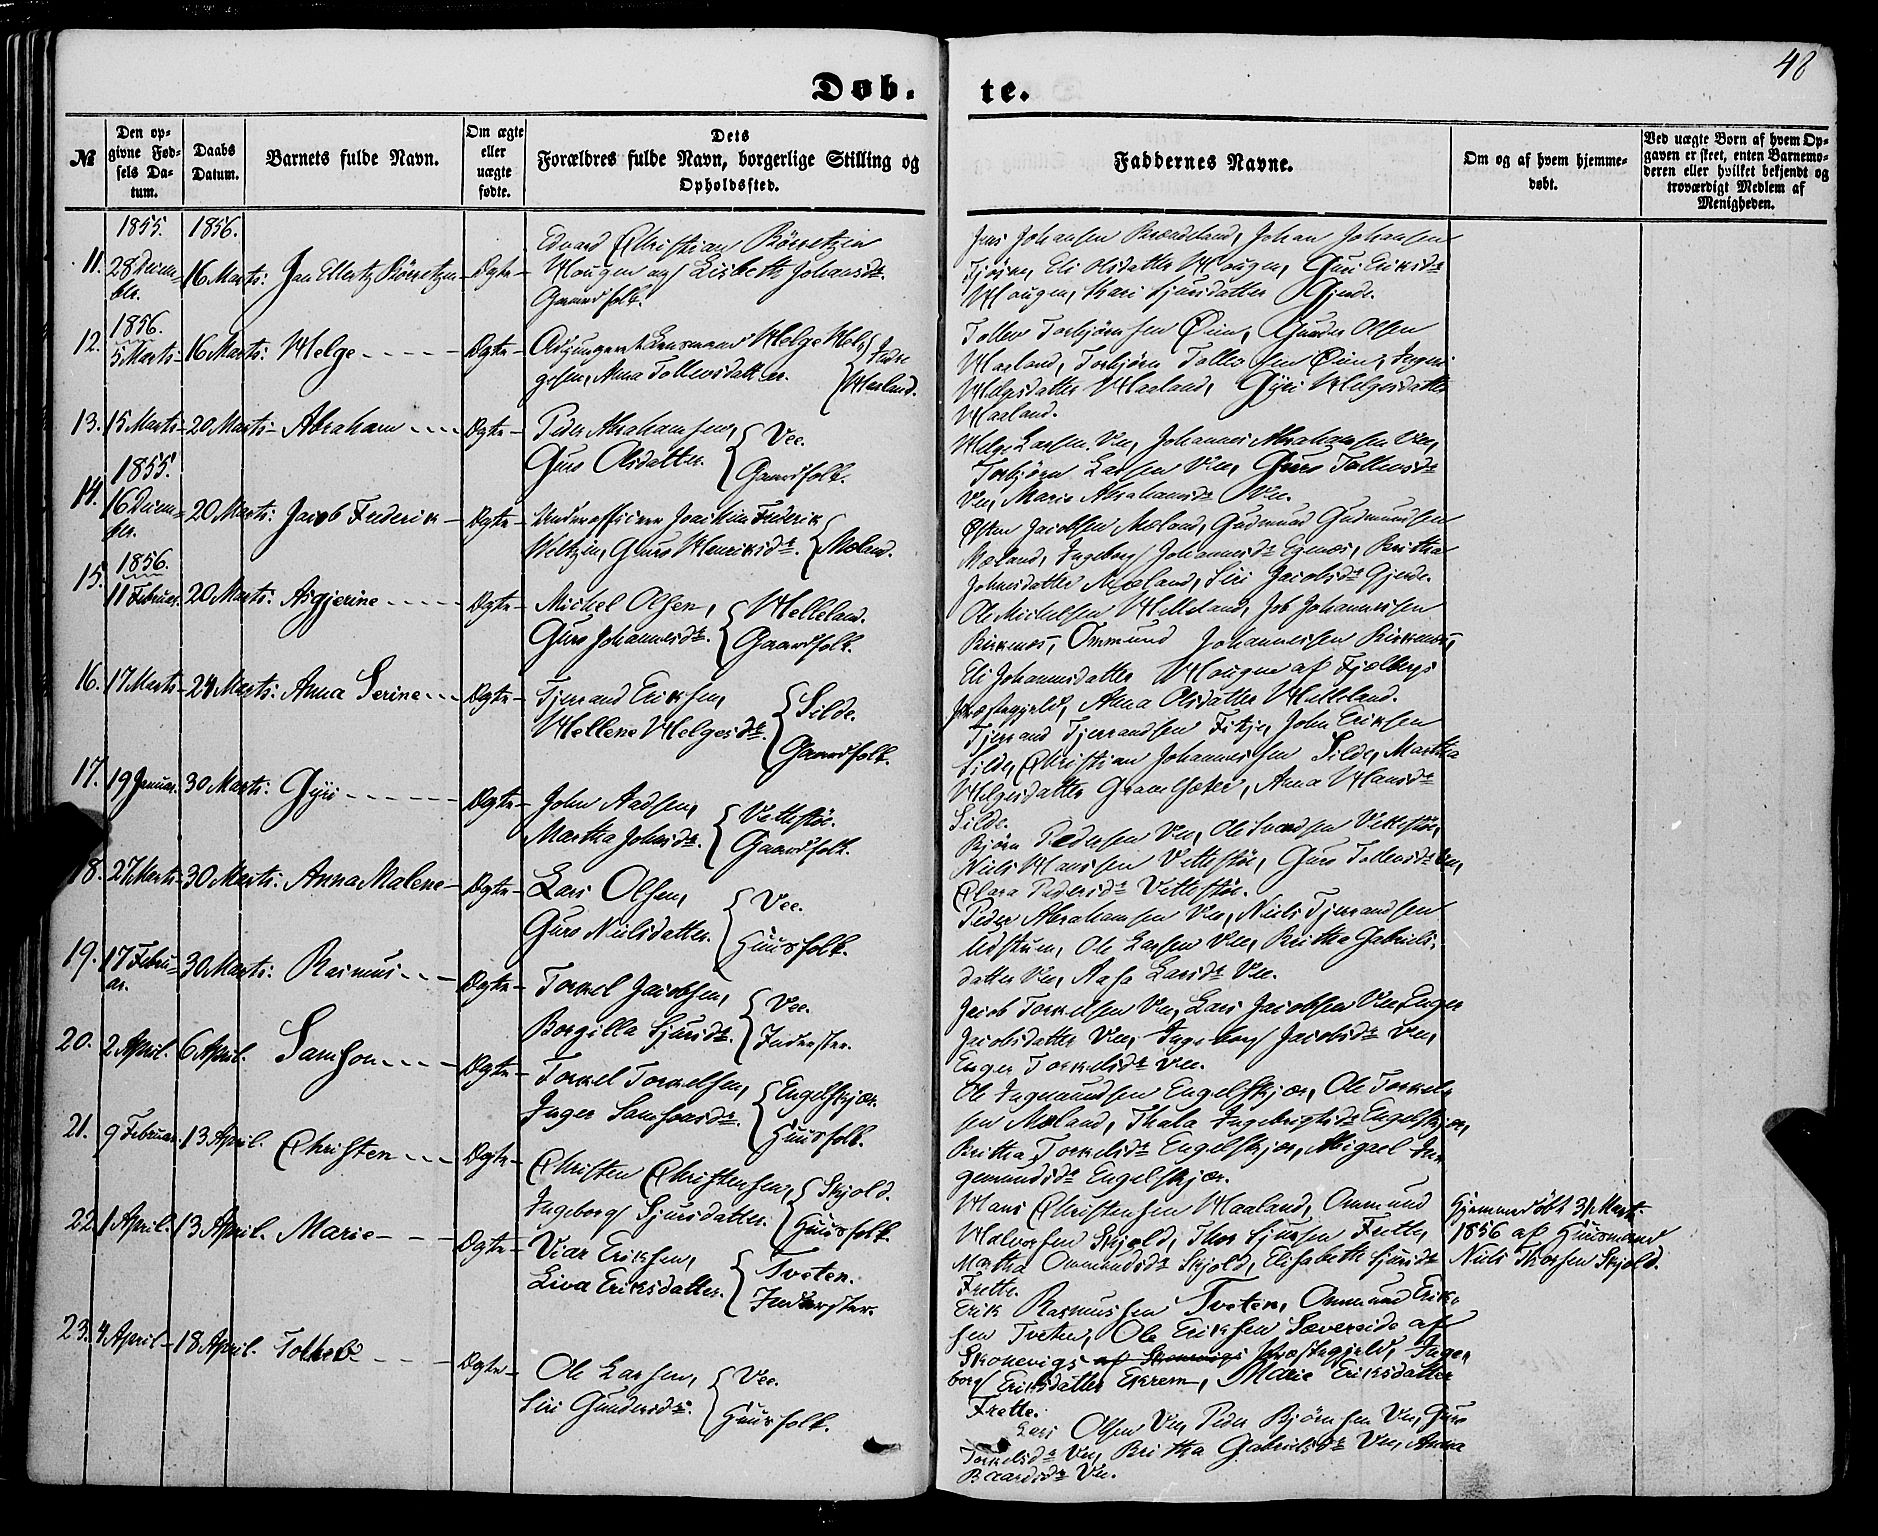 48
Døb. te.
№
Den op-
givne Fød-
sels Da-
tum.
Daabs
Datum.
Barnets fulde Navn.
Om ægte
eller
uægte
fødte.
Dets
Forældres fulde Navn, borgerlige Stilling og
Opholdssted.
Faddernes Navne.
Om og af hvem hjemme-
døbt.
Ved uægte Børn af hvem Op-
gaven er skeet, enten Barnemo-
deren eller hvilket bekjendt og
troværdigt Medlem af
Menigheden.
1855. 1856.
11. 28 Decem-
ber. 16 Marts: Jan Ellertz Börretzen Ægte
Edvard Christian Börretzen
Hougen og Lisbeth Johansdr.
Gaardfolk.
Jens Johansen Johan Johansen
Eli Olsdatter Hougen, Guri Eriksdr
Hougen, Kari Sjursdatter Gjerde.
1856.
12. 5 Marts 16 Marts: Helge Ægte
Adjungert Lensmand Helge Hel-
gesen, Anna Tollevsdatter. Indre
Haaland.
Tollev Torbjörnsen Öien, Gunder Olsen
Haaland, Torbjörn Tollevsen Öien, Ingeri
Helgesdatter Haaland, Gyri Helgesdatter
Haaland.
13. 15 Marts 20 Marts Abraham Ægte
Peder Abrahamsen,
Guro Olsdatter. Vee.
Gaardfolk.
Helge Larsen Vee, Johannes Abrahamsen Vee,
Torbjörn Larsen Vee, Guro Tollevsdr
Vee, Marie Abrahamsdr Vee.
1855.
14. 16 Decem-
ber. 20 Marts: Jacob Frederik Ægte
Underofficeer Joachim Frederik
Weltzin, Guro Henriksdr. Mæland.
Östen Jacobsen Mæland, Gudmund Gudmundsen
Mæland, Ingeborg Johannesdr Egenæs, Britha
Johnsdatter Mæland, Siri Jacobsdr Gjerde.
1856.
15. 11 Februar. 20 Marts: Asgjerine Ægte
Michel Olsen,
Guro Johannesdr. Helleland.
Gaardfolk.
Ole Michelsen Helleland, Job Johannessen
Birkenæs, Ommund Johannessen Birkenæs,
Eli Johannesdatter Hougen af Fjælbergs
Præstegjeld, Anna Olsdatter Helleland.
16. 17 Marts 24 Marts: Anna Serine Ægte
Tjerrand Eriksen,
Hellene Helgesdr. Silde.
Gaardfolk.
Tjerrand Tjerrandsen Fikje, John Eriksen
Silde, Christian Johannessen Silde, Martha
Helgesdatter Anna Hansdr
Silde.
17. 19 Januar. 30 Marts: Gyri Ægte
John Aadsen,
Martha Johnsdr. Vettestöe.
Gaardfolk.
Björn Pedersen Vee, Ole Svendsen Vettestöe,
Niels Hansen Vettestöe, Guro Tollevsdr Vee,
Clara Pedersdr Vettestöe.
18. 27 Marts 30 Marts: Anna Malene Ægte
Lars Olsen,
Guro Nielsdatter. Vee.
Huusfolk.
Peder Abrahamsen Vee, Niels Tjerrandsen
Udstuen, Ole Larsen Vee, Britha Gabriels-
datter Vee, Aasa Larsdr Vee.
19. 17 Febru-
ar. 30 Marts: Rasmus Ægte
Torkel Jacobsen,
Borgilla Sjursdr. Vee.
Inderster.
Jacob Torkelsen Vee, Lars Jacobsen Vee, Enger
Jacobsdatter Vee, Ingeborg Jacobsdr Vee,
Enger Torkelsdr Vee.
20. 2 April. 6 April. Samson Ægte
Torkel Torkelsen,
Inger Samsonsdr. Engelskjær.
Huusfolk.
Ole Ingemundsen Engelskjær, Ole Torkel-
sen Mæland, Thala Ingebrigtsdr Engelskjær,
Britha Torkelsdr Engelskjær, Migael In-
gemundsdr Engelskjær.
21. 9 Februar. 13 April. Christen Ægte
Christen Christensen,
Ingeborg Sjursdatter. Skjold.
Huusfolk.
Hans Christensen Haaland, Ommund
Halvorsen Skjold, Thor Sjursen Frette,
Martha Ommundsdr Skjold, Elisabeth Sjursdr
Frette.
Hjemmedöbt 31 Marts
1856 af Huusmand
Niels Thorsen Skjold.
22. 1 April. 13 April. Marie Ægte
Viar Eriksen,
Liva Eriksdatter. Tveten.
Inderster.
Erik Rasmussen Tveten, Ommund Erik-
sen Tveten, Ole Eriksen Sævereide af
Skonevigs af Skonevigs Præstegjeld, Inge-
borg Eriksdatter Ekrem, Marie Eriksdatter
Frette.
23. 4 April 18 April. Ægte
Ole Larsen,
Siri Gundersdr. Vee.
Huusfolk.
Lars Olsen Vee, Peder Björnsen Vee, Guro
Torkelsdr Vee, Britha Gabrielsdr Vee, Anna
Baardsdr Vee.